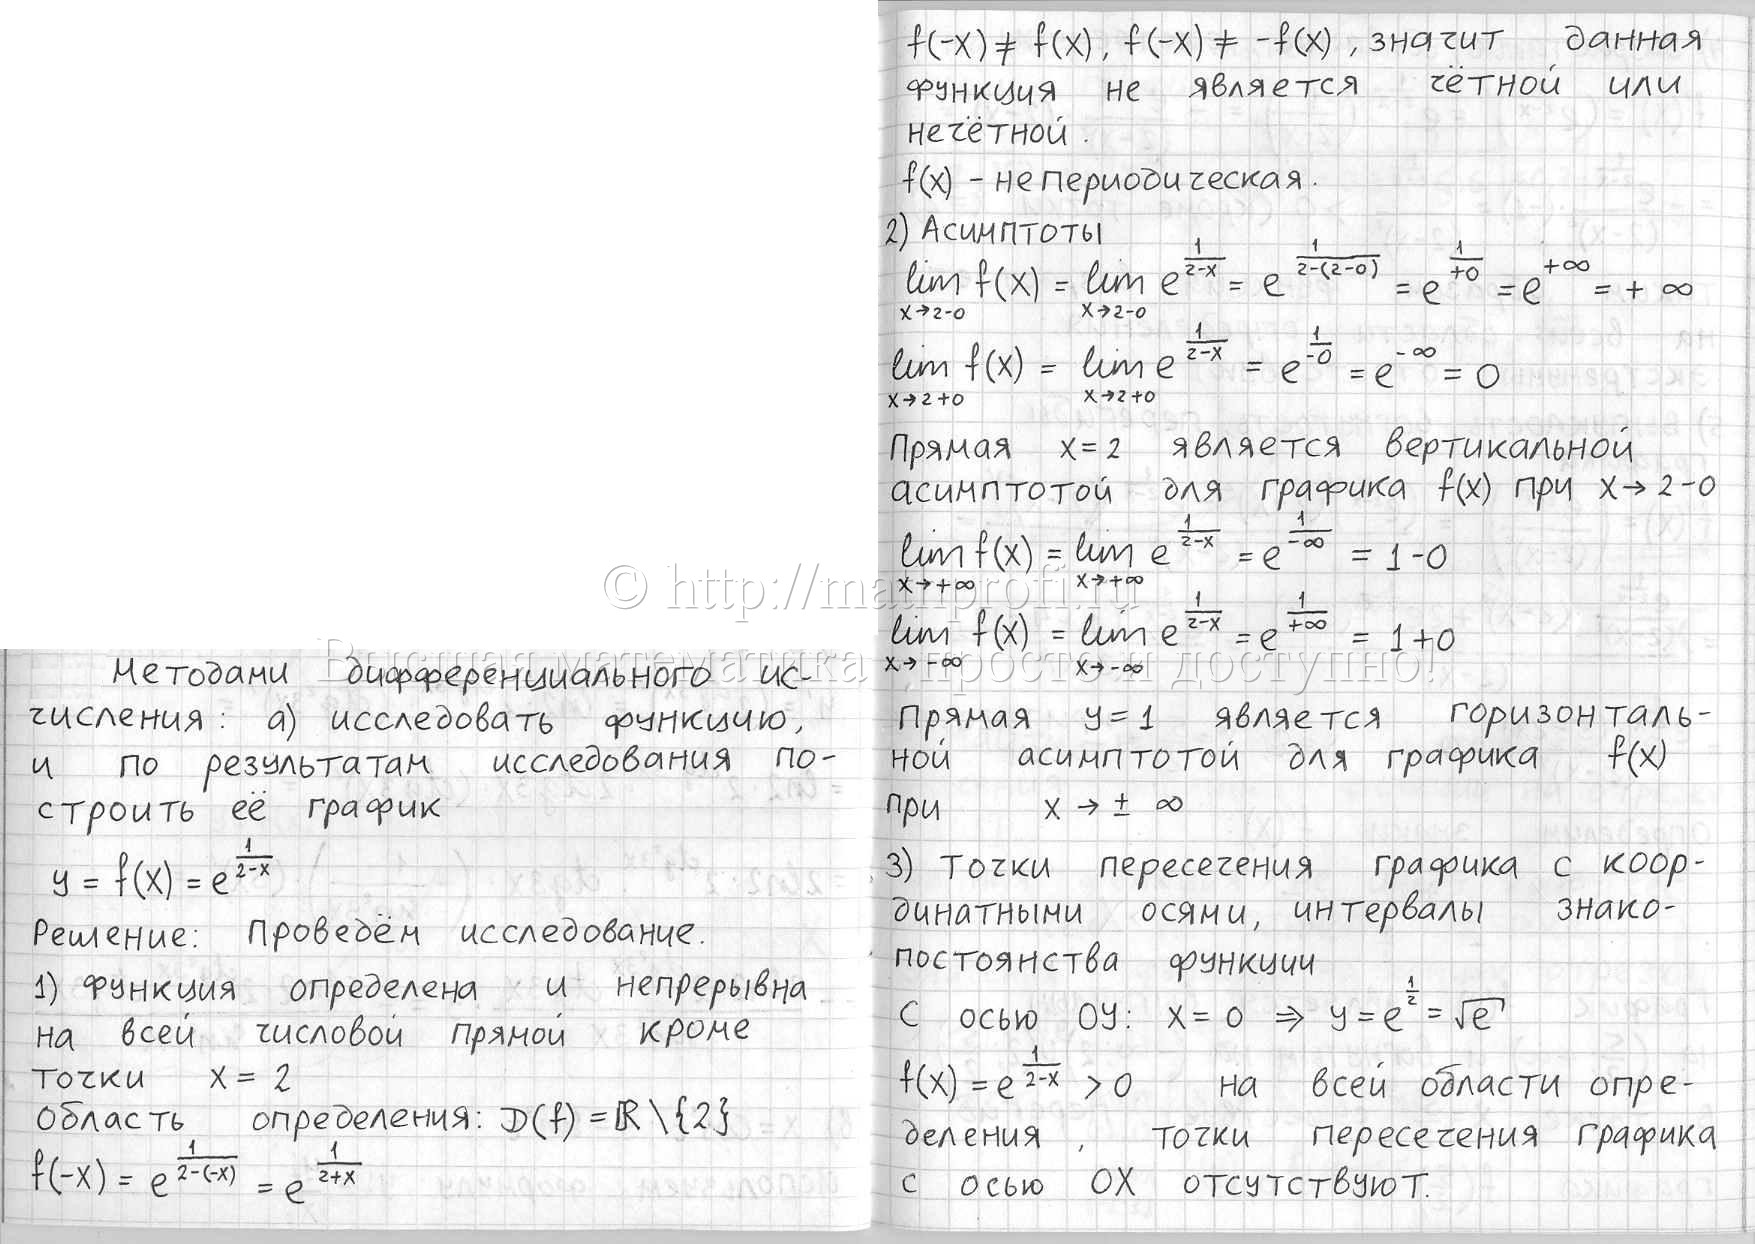 Методами дифференциального ис-
числения: а) исследовать функцию,
и по результатам исследования по-
строить её график
y = f(x) = e^{\frac{1}{2-x}}
Решение: Проведём исследование.
1) Функция определена и непрерывна
на всей числовой прямой кроме
точки x = 2
Область определения: D(f) = ℝ \ {2}
f(-x) = e^{\frac{1}{2-(-x)}} = e^{\frac{1}{2+x}}
f(-x) ≠ f(x), f(-x) ≠ -f(x), значит данная
функция не является чётной или
нечётной.
f(x) - непериодическая.
2) Асимптоты
lim_{x→2-0} f(x) = lim_{x→2-0} e^{\frac{1}{2-x}} = e^{\frac{1}{2-(2-0)}} = e^{\frac{1}{+0}} = e^{+∞} = + ∞
lim_{x→2+0} f(x) = lim_{x→2+0} e^{\frac{1}{2-x}} = e^{\frac{1}{-0}} = e^{-∞} = 0
Прямая x = 2 является вертикальной
асимптотой для графика f(x) при x → 2-0
lim_{x→+∞} f(x) = lim_{x→+∞} e^{\frac{1}{2-x}} = e^{\frac{1}{-∞}} = 1-0
lim_{x→-∞} f(x) = lim_{x→-∞} e^{\frac{1}{2-x}} = e^{\frac{1}{+∞}} = 1+0
Прямая y = 1 является горизонталь-
ной асимптотой для графика f(x)
при x → ± ∞
3) Точки пересечения графика с коор-
динатными осями, интервалы знако-
постоянства функции
С осью OY: x = 0 ⇒ y = e^{\frac{1}{2}} = √e
f(x) = e^{\frac{1}{2-x}} > 0 на всей области опре-
деления, точки пересечения графика
с осью OX отсутствуют.
© http://mathprofi.ru
Высшая математика – просто и доступно!